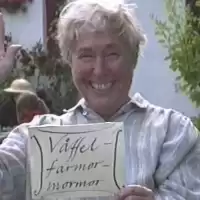 Våffel-
farmor-
mormor